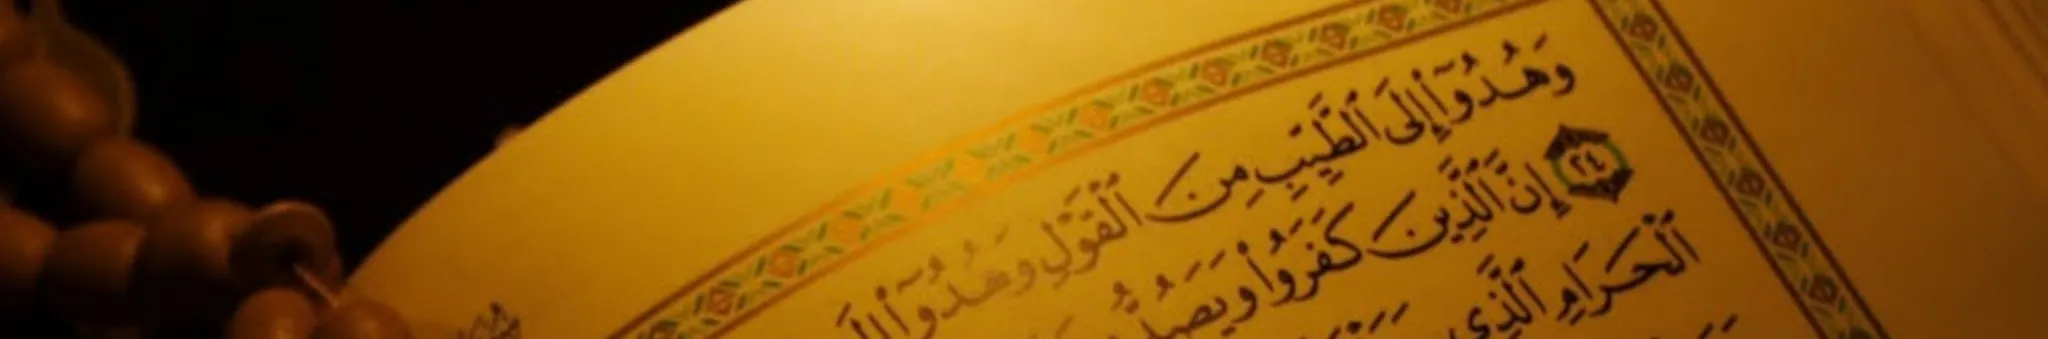 وَهُدُوٓا۟ إِلَى ٱلطَّيِّبِ مِنَ ٱلْقَوْلِ وَهُدُوٓا۟ إِلَىٰ
٢٤ إِنَّ ٱلَّذِينَ كَفَرُوا۟ وَيَصُدُّونَ
ٱلْحَرَامِ ٱلَّذِى